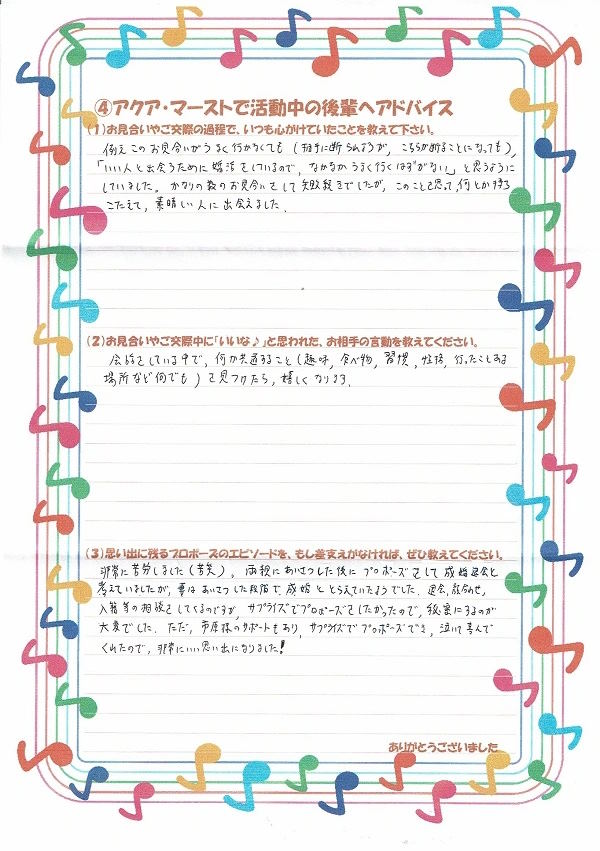 ④アクア・マーストで活動中の後輩へアドバイス
(1)お見合いやご交際の過程で、いつも心がけていたことを教えて下さい。
例えこのお見合いがうまく行かなくても(相手に断られようが、こちらが断ることになっても)、
「いい人と出会うために婚活をしているので、なかなかうまく行くはずがない」と思うように
していました。かなりの数のお見合いをして失敗続きでしたが、このことを思って何とかもち
こたえて、素晴しい人に出会えました。
(2)お見合いやご交際中に「いいな♪」と思われた、お相手の言動を教えてください。
会話をしている中で、何か共通すること(趣味、食べ物、習慣、性格、行ったことある
場所など何でも)を見つけたら、嬉しくなります。
(3)思い出に残るプロポーズのエピソードを、もし差支えがなければ、ぜひ教えてください。
非常に苦労しました(苦笑)。両親にあいさつした後にプロポーズをして成婚退会と
考えていましたが、妻はあいさつした段階で成婚ととらえていたようでした。退会、顔合わせ、
入籍等の相談をしてくるのですが、サプライズでプロポーズをしたかったので、秘密にするのが
大変でした。ただ、市原様のサポートもあり、サプライズでプロポーズでき、泣いて喜んで
くれたので、非常にいい思い出になりました!
ありがとうございました